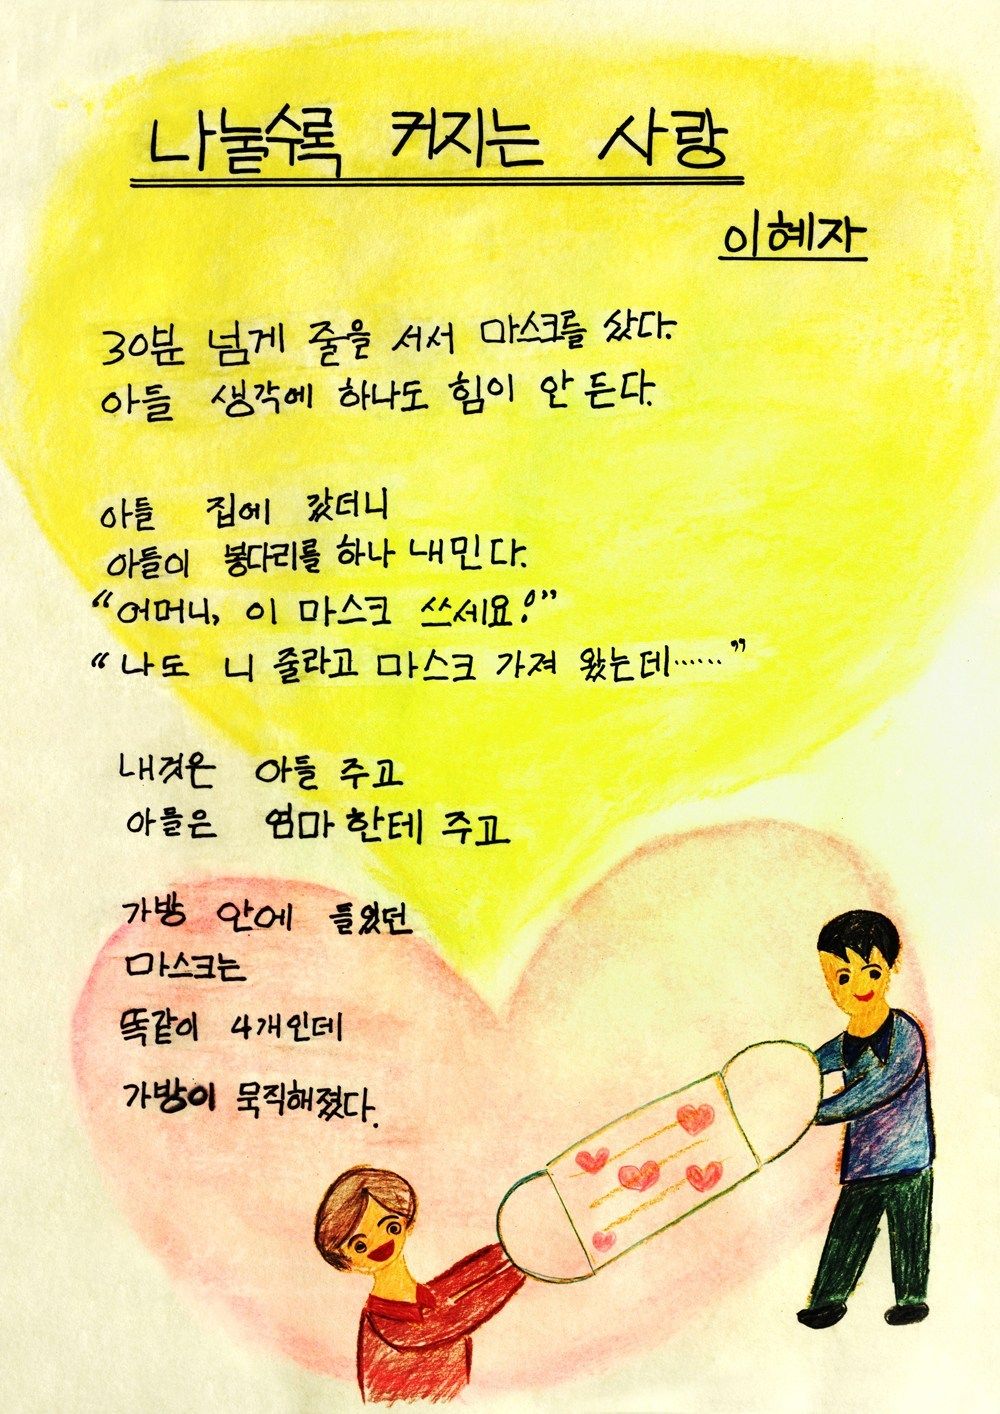 나눌수록 커지는 사랑
이혜자
30분 넘게 줄을 서서 마스크를 샀다.
아들 생각에 하나도 힘이 안 든다.
아들 집에 갔더니
아들이 봉다리를 하나 내민다.
“어머니, 이 마스크 쓰세요!”
“나도 니 줄라고 마스크 가져 왔는데……”
내것은 아들 주고
아들은 엄마한테 주고
가방 안에 들었던
마스크는
똑같이 4개인데
가방이 묵직해졌다.